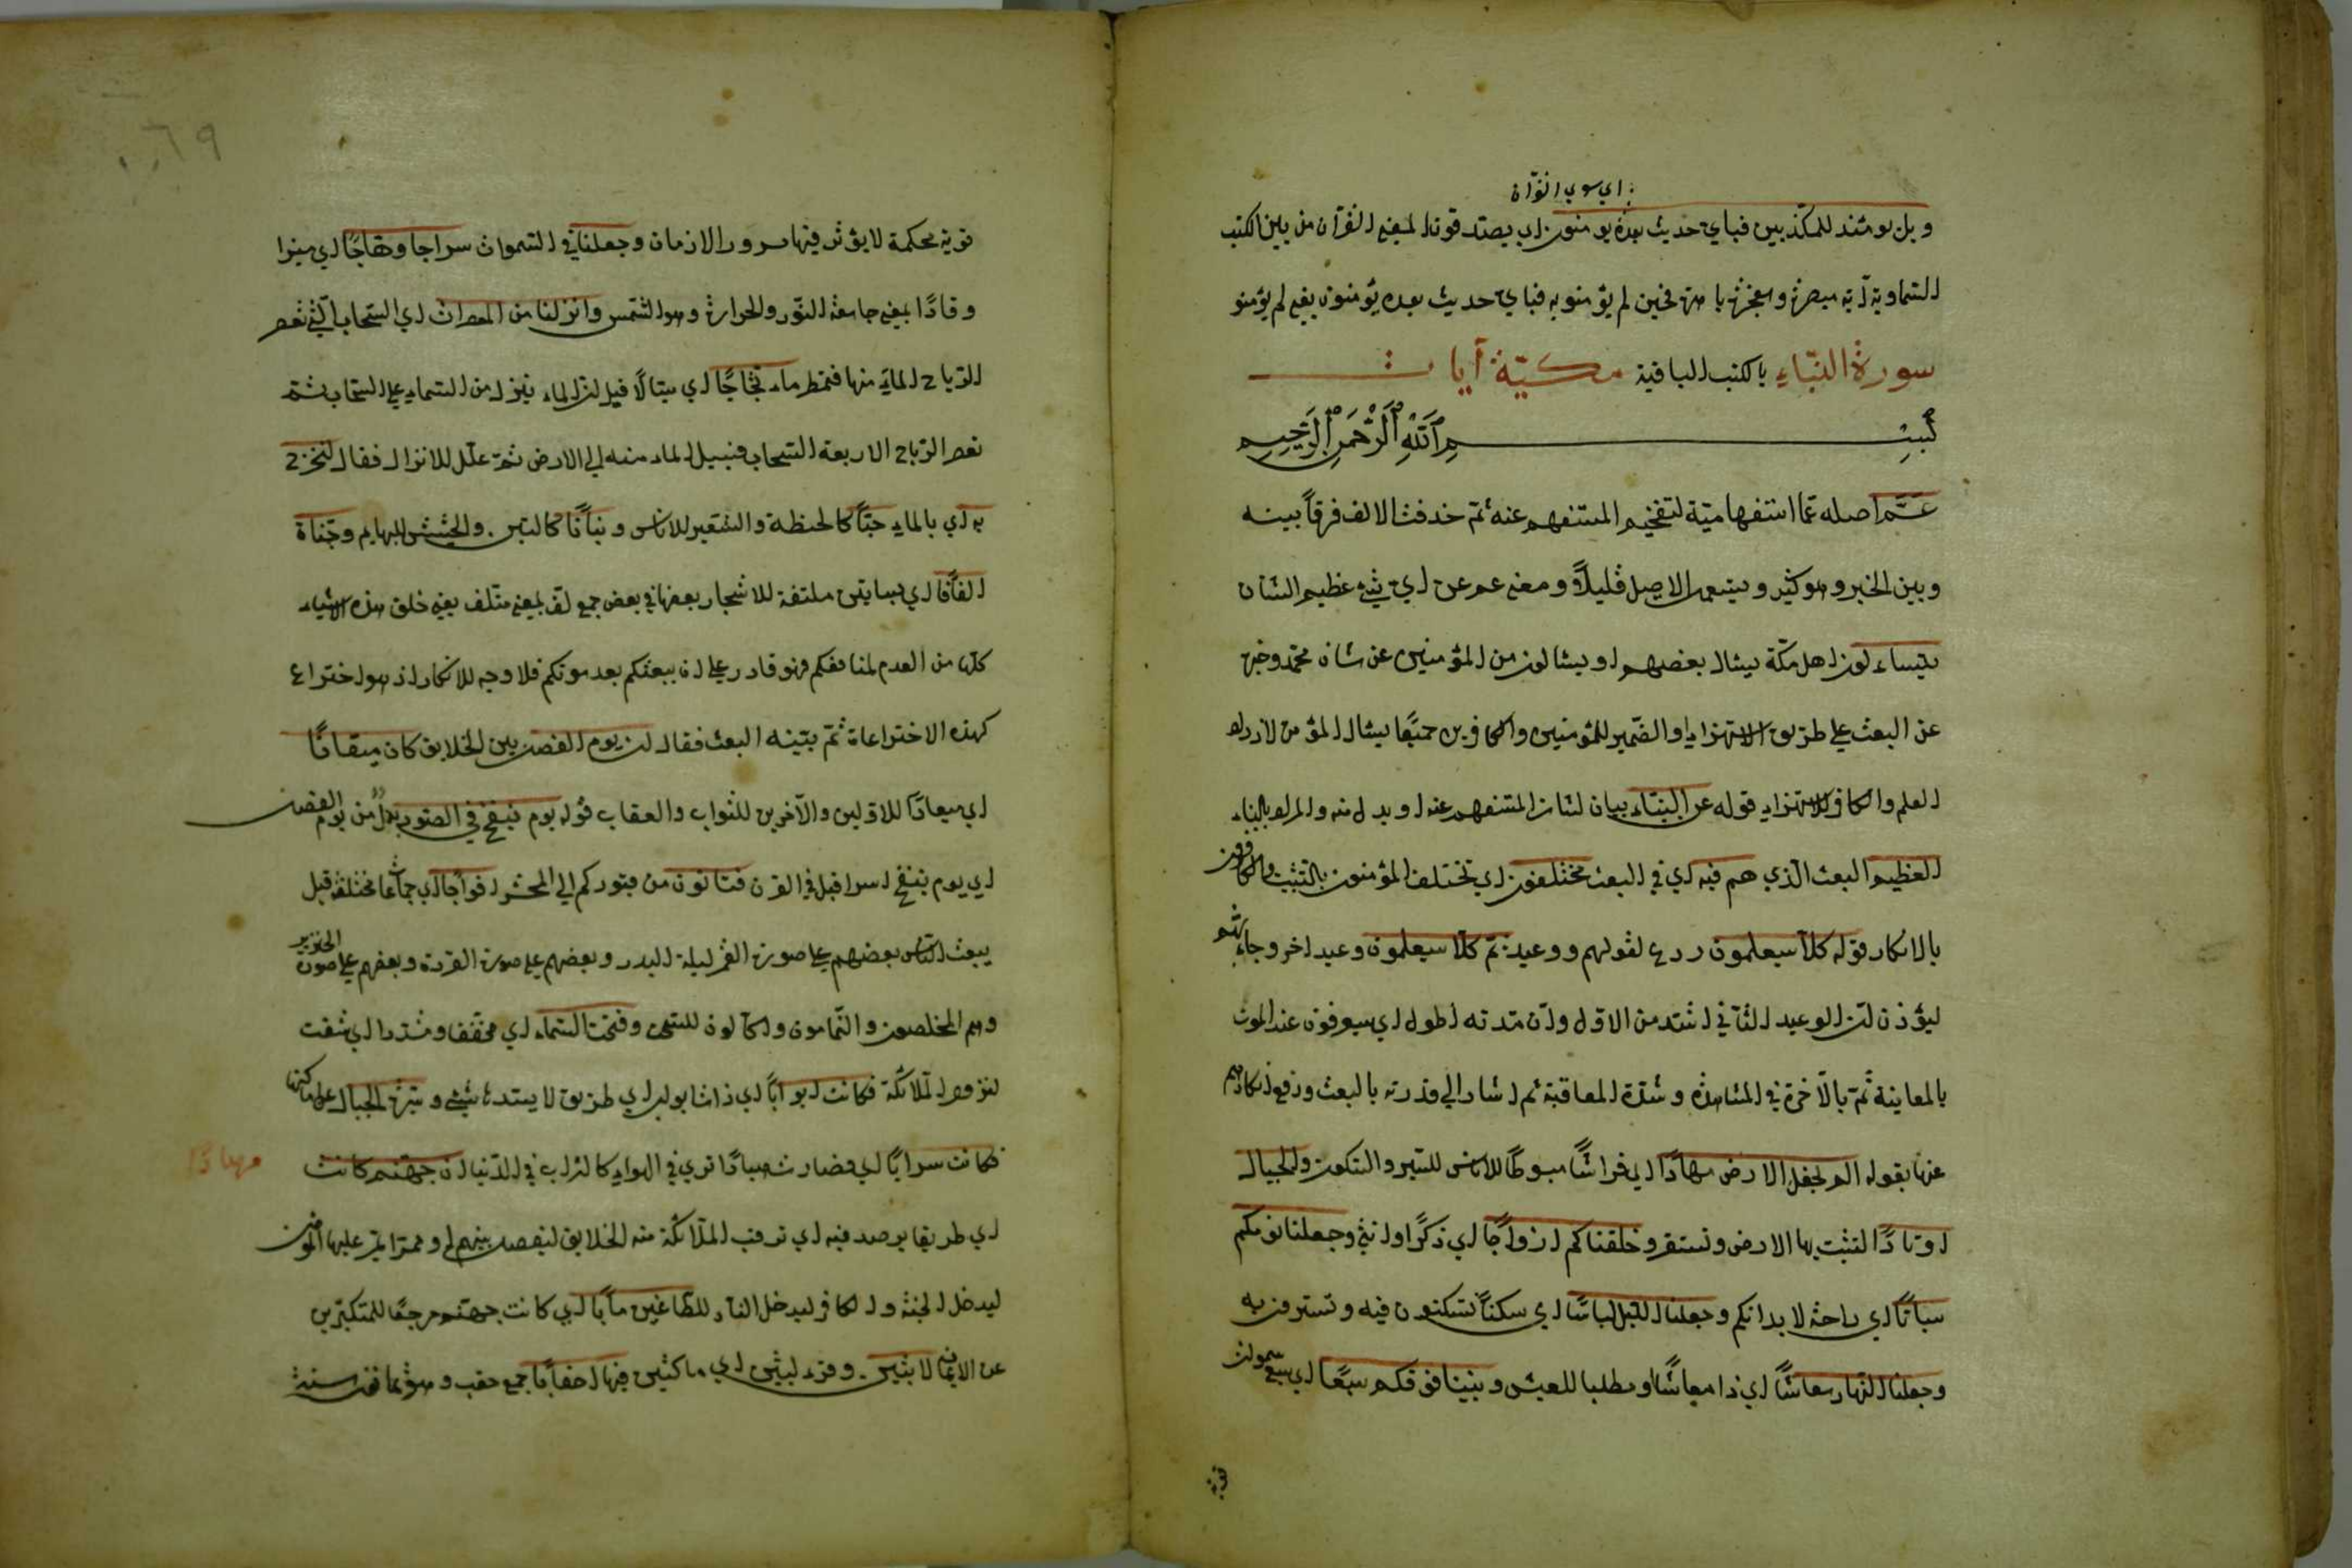 اي سوي القرآن
ويل يومئذ للمكذبين فباي حديث بعده يومنون اي يصدقون المعني القرآن من بين الكتب
السماوية آية مبصرة ومعجزة باهرة فحين لم يؤمنوا به فباي حديث بعده يؤمنون يعني لم يؤمنوا
سورة النّباء بالكتب الباقية مكيّة آيات
بسم الله الرحمن الرحيم
عَمَّ اصله عمّا استفهاميّة لتفخيم المستفهم عنه ثمّ حذفت الالف فرقاً بينه
وبين الخبر وهو كثير ويستعمل الاصل قليلاً ومعني عم عن اي شئ عظيم الشان
يتساءلون اهل مكة يسئال بعضهم او يسئالون من المؤمنين عن شان محمد وخبره
عن البعث علي طريق الاستهزاء والضّمير للمؤمنين والكافرين جميعًا يسئال المؤمن لازدياد
العلم والكافر للاستهزاء قوله عن النّباء بيان لشان المستفهم عنه او بدل منه والمراد بالنباء
العظيم البعث الّذي هم فيه اي في البعث مختلفون اي تختلف المؤمنون بالتثبت والكافرون
بالانكار قوله كلّا سيعلمون ردع لقولهم ووعيد ثمّ كلّا سيعلمون وعيد اخر وجاء بثم
ليؤذن انّ الوعيد الثاني اشد من الاوّل وانّ مدته اطول اي سيعرفون عند الموت
بالمعاينة ثمّ بالآخرة في المشاهدة وشدّة المعاقبة ثم اشار الي قدرته بالبعث ودفع انكارهم
عنها بقوله الم نجعل الارض مهادًا اي فراشًا مبسوطًا للناس للسير والسكون والجبال
اوتادًا لتثبت بها الارض وتستقر وخلقناكم ازواجًا اي ذكرًا وانثي وجعلنا نومكم
سباتًا اي راحة لابدانكم وجعلنا اللّيل لباسًا اي سكنًا تسكنون فيه وتستترون به
وجعلنا النّهار معاشًا اي ذا معاشًا ومطلبا للعيش وبنينا فوقكم سبعًا اي سبع سموات
قوية محكمة لا يؤثر فيها مرور الازمان وجعلنا في السّموات سراجا وهّاجًا اي منيرا
وقادًا بمعني جامعة النّور والحرارة وهو الشّمس وانزلنا من المعصرات اي السّحاب الّتي تعصر
الرّياح الماء منها فتمطر ماء ثجّاجًا اي سيّالًا قيل انّ الماء ينزل من السّماء علي السّحاب ثمّ
تعصر الرّياح الاربعة السّحاب فيسيل الماء منه الي الارض ثمّ علّل للانزال فقال لنخرج
به اي بالماء حبًّا كالحنطة والشّعير للاناس ونباتًا كالتبن والحشيش للبهايم وجنّاة
الفافًا اي بساتين ملتفة للاشجار بعضها في بعض جمع لفّ بمعني متلف يعني خلق هذه الاشياء
كلّها من العدم لمنافعكم فهو قادر علي ان يبعثكم بعد موتكم فلا وجه للانكار اذ هو اختراع
كهذه الاختراعاة ثمّ بيّنه البعث فقال انّ يوم الفصل بين الخلايق كان ميقاتًا
اي ميعادًا للاوّلين والآخرين للثواب والعقاب قوله يوم ينفخ في الصّور بدل من يوم الفصل
اي يوم ينفخ اسرافيل في القرن فتاتون من قبوركم الي المحشر افواجًا اي جماعًا مختلفة قيل
يبعث النّاس بعضهم علي صورة القمر ليلة البدر وبعضهم علي صورة القردة وبعضهم علي صورة الخنزير
وهم المخلصون والنّمامون واكّالون للسّحت وفتحت السّماء اي مخفّفا ومشدّدا اي شقت
لنزول الملائكة فكانت ابوابًا اي ذات ابواب اي طريق لا يستدها شئ وسيّرت الجبال عن اماكنها
فكانت سرابًا اي فصارت هباءًا تري في الهواء كالتراب في الدّنيا ان جهنّم كانت
مهادًا
اي طريقا يرصد فيه اي ترقب الملآئكة منه الخلايق ليفصل بينهم او ممرّا يمرّ عليها المؤمن
ليدخل الجنّة والكافر ليدخل النار للطاغين مآبًا اي كانت جهنّم مرجعًا للمتكبّرين
عن الايمان لابثين وقرء لبثين اي ماكثين فيها احقابًا جمع حقب وهو ثمانون سنة